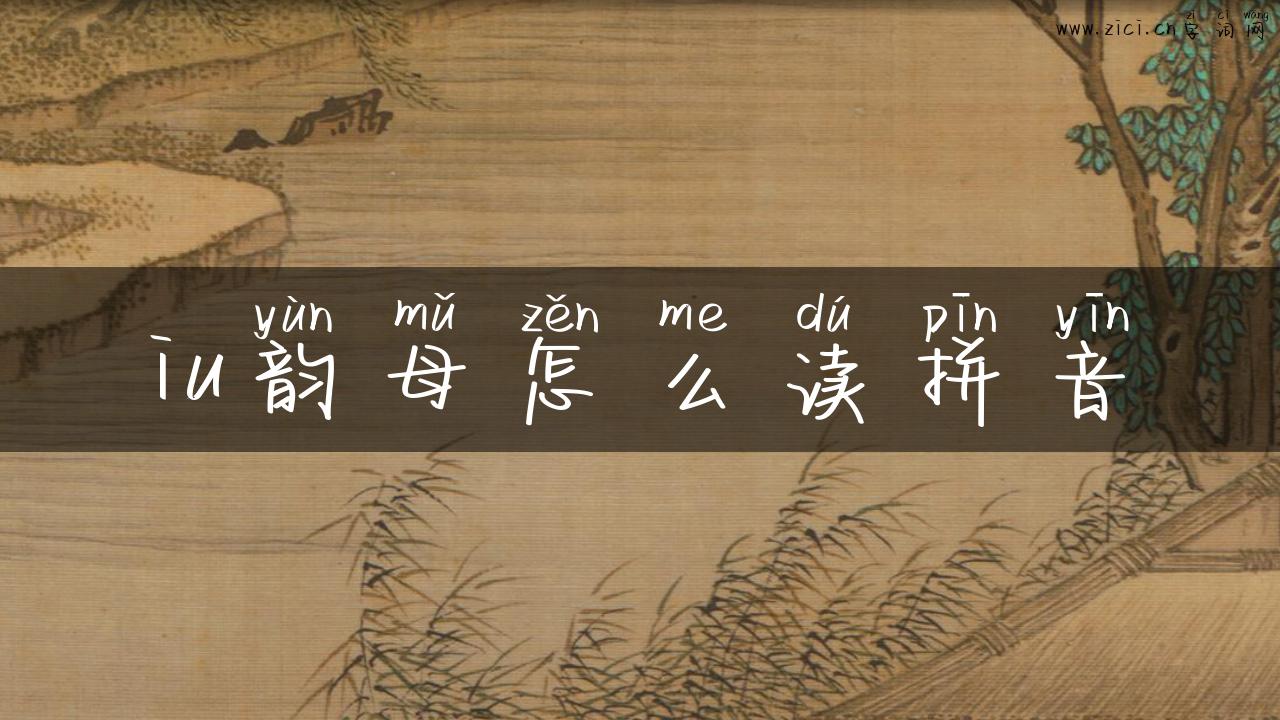 zì cí wǎng
www.zici.cn字词网
yùn mǔ zěn me dú pīn yīn
īu韵母怎么读拼音